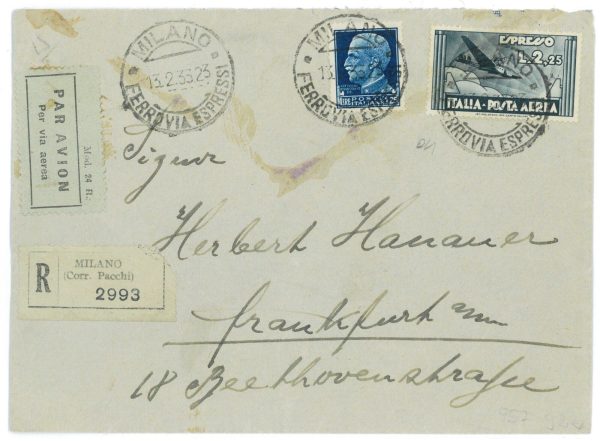 MILANO
13.2.35.23
FERROVIA ESPRESSI
MILANO
FERROVIA ESPRESSI
LIRE POSTE ITALIANE
ESPRESSO
L.2,25
ITALIA·POSTA AEREA
FERROVIA ESPRESSI
PAR AVION
Per via aerea
Mod. 24 R.
Signor
Herbert Hanauer
R
MILANO
(Corr. Pacchi)
2993
Frankfurt
18 Beethovenstraße